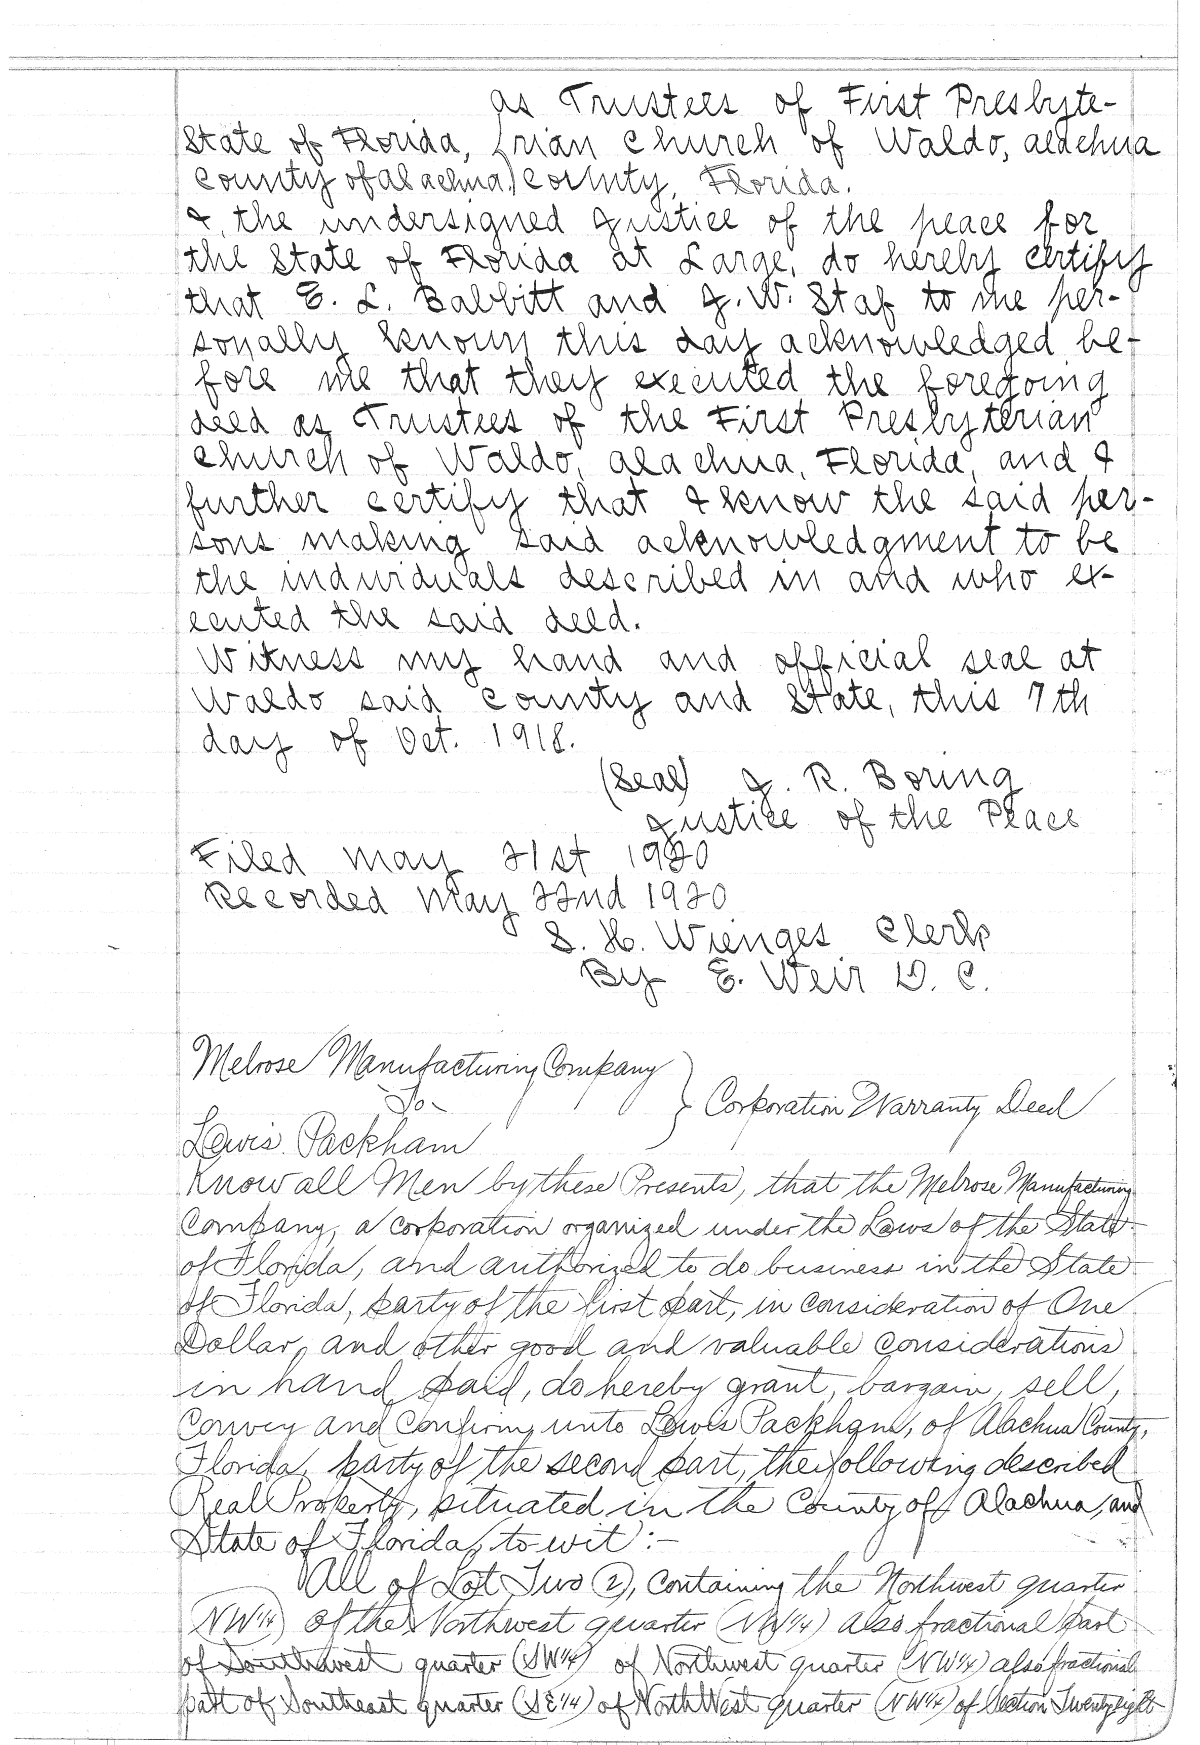 as Trustees of First Presbyte-
State of Florida, rian Church of Waldo, Alachua
County of Alachua) County, Florida.
I, the undersigned Justice of the peace for
the State of Florida at Large, do hereby certify
that E. L. Babbitt and J. W. Staf to me per-
sonally known this day acknowledged be-
fore me that they executed the foregoing
deed as Trustees of the First Presbyterian
Church of Waldo, Alachua, Florida, and I
further certify that I know the said per-
sons making said acknowledgment to be
the individuals described in and who ex-
ecuted the said deed.
Witness my hand and official seal at
Waldo said County and State, this 7th
day of Oct. 1918.
(Seal) J. R. Boring
Justice of the Peace
Filed May 21st 1920
Recorded May 22nd 1920
S. H. Wienges Clerk
By E. Weir D. C.
Melrose Manufacturing Company
To
Corporation Warranty Deed
Lewis Packham
Know all Men by these Presents, that the Melrose Manufacturing
Company, a corporation organized under the Laws of the State
of Florida, and authorized to do business in the State
of Florida, party of the first part, in consideration of One
Dollar, and other good and valuable considerations
in hand paid, do hereby grant, bargain, sell,
Convey and Confirm, unto Lewis Packham, of Alachua County,
Florida, party of the second part, the following described
Real Property, situated in the County of Alachua, and
State of Florida, to wit:-
All of Lot Two (2), Containing the Northwest quarter
(NW1/4) of the Northwest quarter (NW1/4) also fractional part
of Southwest quarter (SW1/4) of Northwest quarter (NW1/4) also fractional
part of Southeast quarter (SE1/4) of NorthWest quarter (NW1/4) of Section Twenty eight